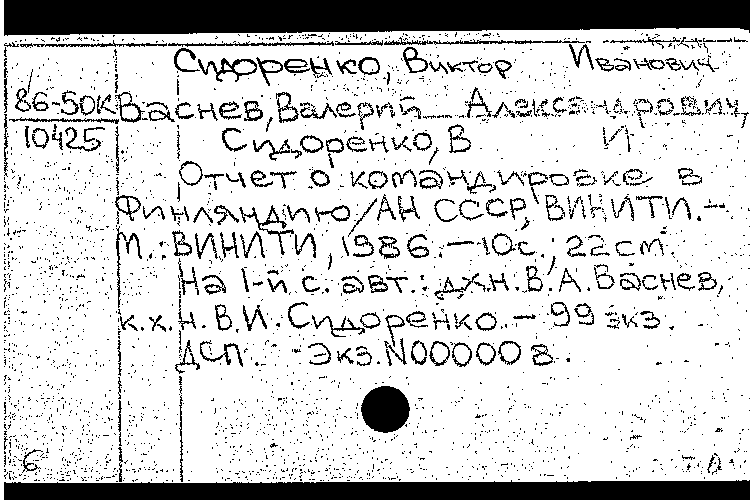 Сидоренко, Виктор Иванович
86-50К Васнев, Валерий Александрович,
10425 Сидоренко, В И
Отчет о командировке в
Финляндию / АН СССР, ВИНИТИ. –
М.: ВИНИТИ, 1986. – 10с.; 22см.
На 1-й с. авт.: д.х.н. В.А. Васнев,
к.х.н. В.И. Сидоренко. – 99 экз.
ДСП. Экз. N000008.
6